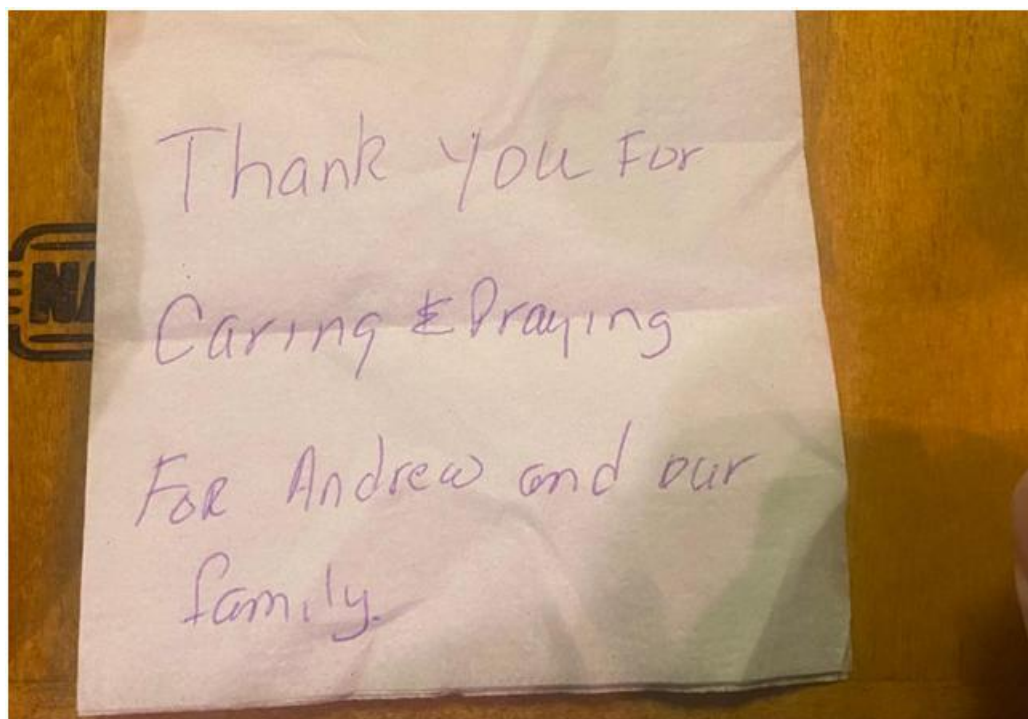 Thank you For
Caring & Praying
FOR Andrew and our
family.
NA